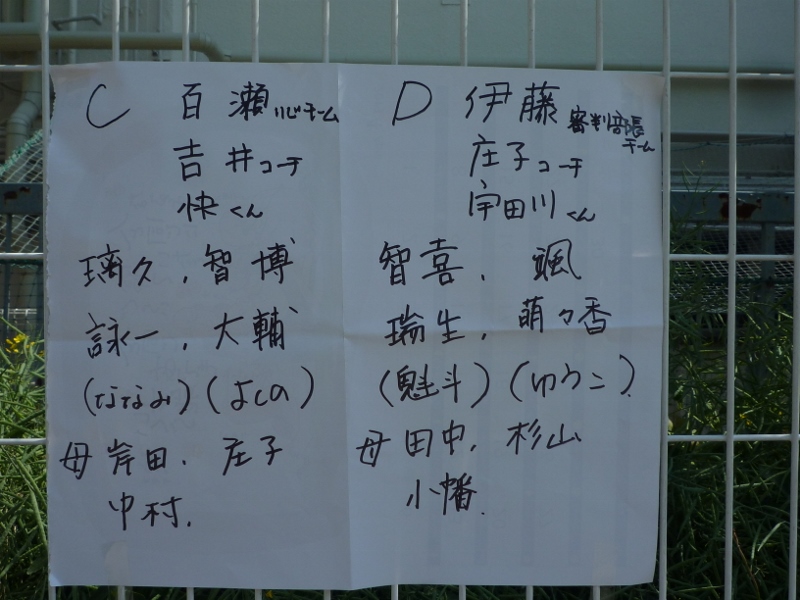 C 百瀬心チーム
吉井コーチ
快くん
璃久、智博
詠一、大輔
(ななみ)(よしの)
母 岸田、庄子
中村、
D 伊藤審判部長チーム
庄子コーチ
宇田川くん
智喜、颯
瑞生、萌々香
(魁斗)(ゆうこ)
母 田中、杉山
小幡